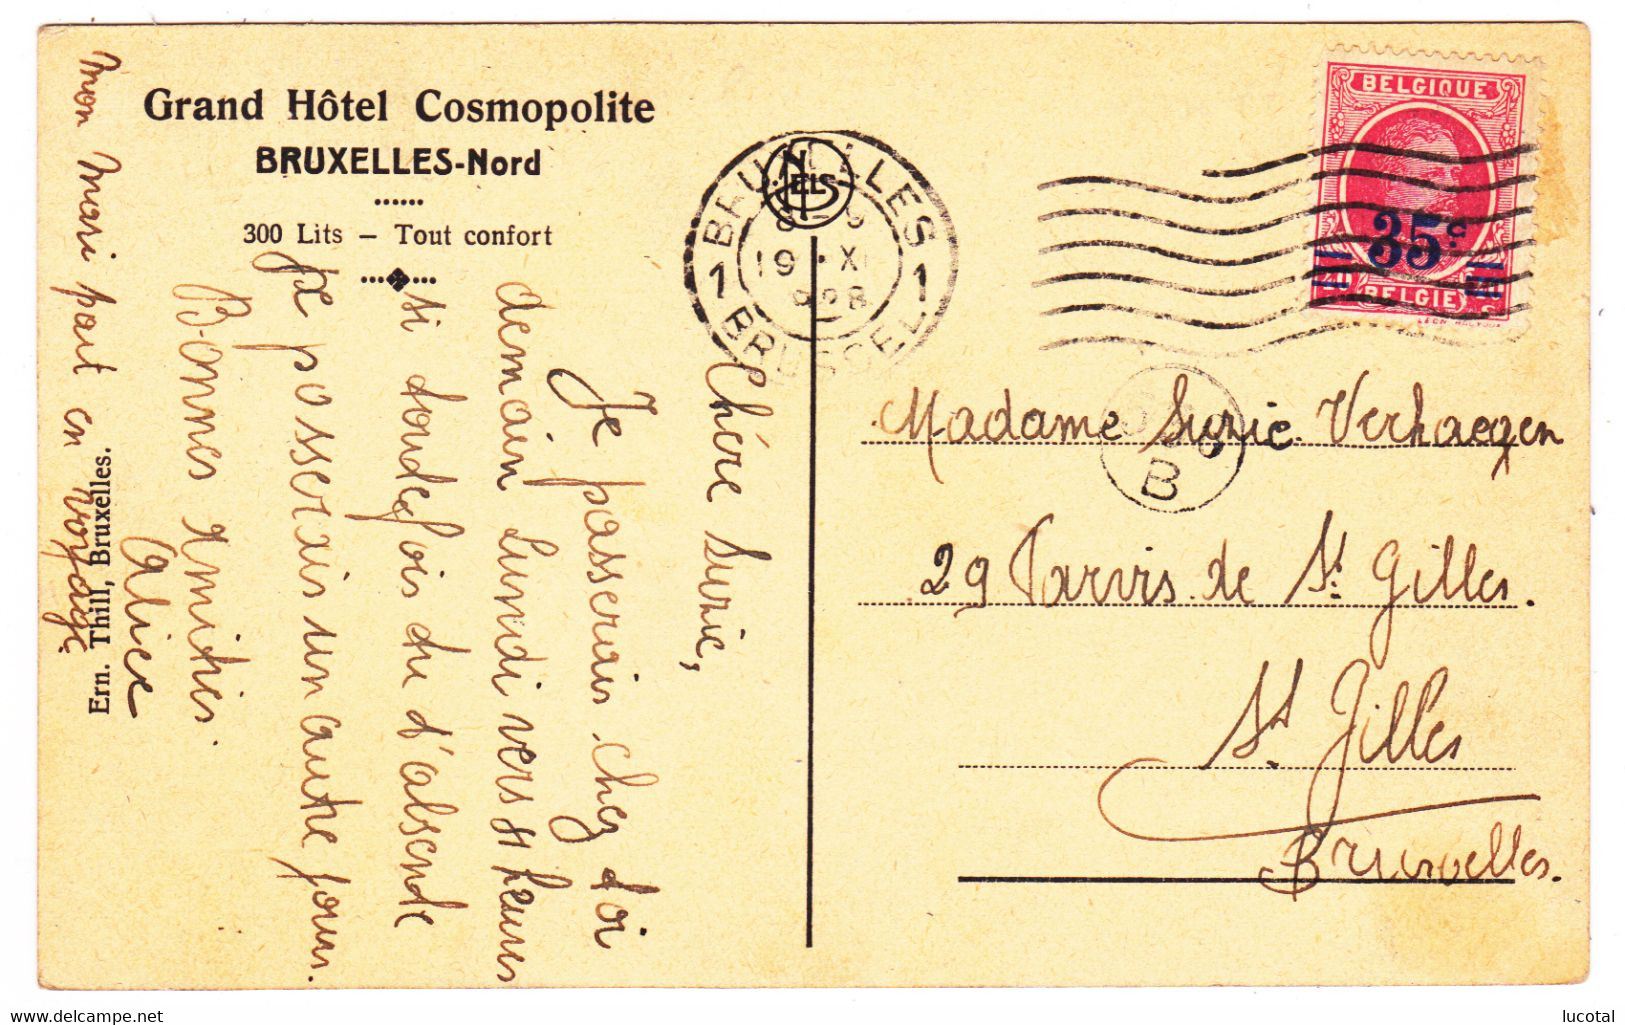 Grand Hôtel Cosmopolite
BRUXELLES-Nord
300 Lits – Tout confort
Ern. Thill, Bruxelles.
NELS
BRUXELLES
1 1
19 XI
1928
BRUSSEL
BELGIQUE
35 c
BELGIË
B
Chère Suzie,
Je passerais chez toi
demain Lundi vers heures
si toutefois tu t'absente
je passerais un autre jour.
Bonnes amitiés.
Alice
mon mari part en voyage.
Madame Suzie Verhaegen
29 Parvis de St. Gilles.
St. Gilles
Bruxelles.
lucotal